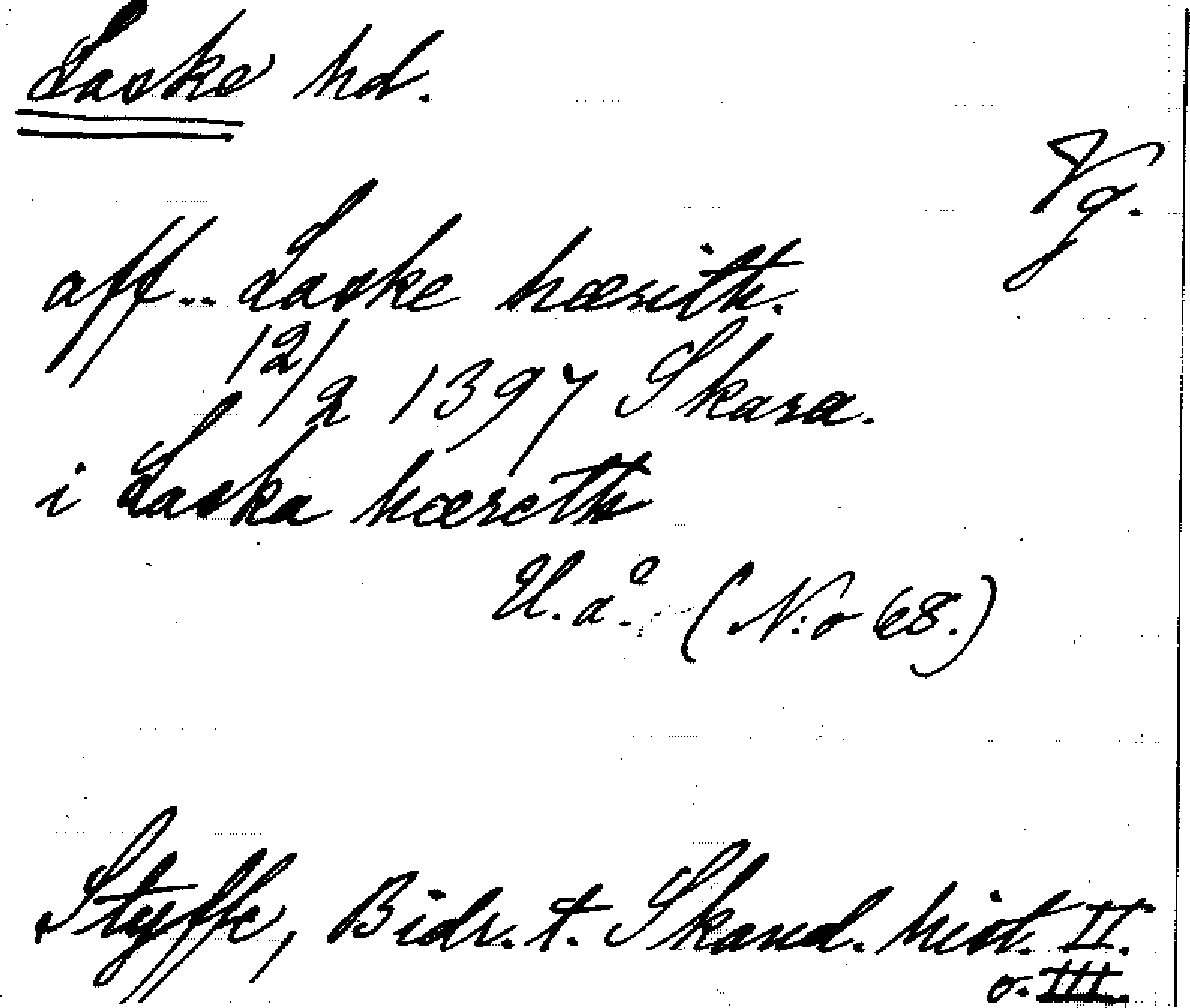 Laske hd.
Vg.
aff.. Laske hærith.
12/2 1397 Skara.
i Laska hæreth
U. å. (N:o 68.)
Styffe, Bidr. t. Skand. hist. II.
o. III